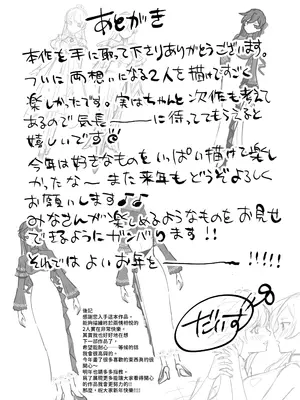 あとがき
本作を手に取って下さりありがとうございます。
ついに両想いになる2人を描けてすごく
楽しかったです。実はちゃんと次作も考えて
あるので気長――――に待っててもらえると
嬉しいです
今年は好きなものをいっぱい描けて楽し
かったな~ また来年もどうぞよろしく
お願いします♪♪
みなさんが楽しめるようなものをお見せ
できるようにガンバリます!!
それでは よいお年を――――!!!!!
だいず
後記
感謝您入手這本作品。
能夠描繪終於兩情相悅的
2人實在非常快樂。
其實我也好好地在想
下一部作品了，
希望能耐心――等候的話
我會很高興的。
今年畫了很多喜歡的東西真的很
開心~
明年也請多多指教。
為了展現更多能讓大家看得開心
的作品我會更努力的!!
那麼，祝大家新年快樂!!!!